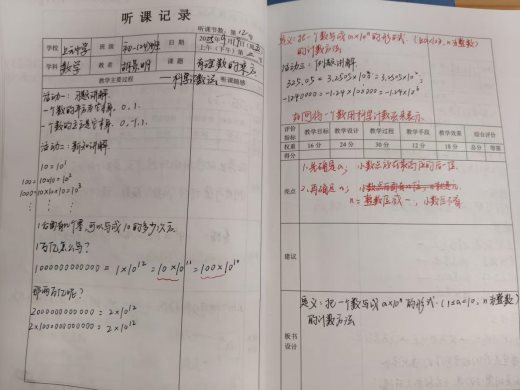 听课记录
听课节数：第12节
学校 上元中学 班级 初一(4)班 日期
上午(下午)第 节
学科 数学 教者 课题 有理数的乘方
教学主要过程 —科学计数法 听课随感
活动一：习题讲解
一个数的平方是它本身，0、1．
一个数的立方是它本身，0、-1、1．
活动二：新知讲解
10 = 10¹
100 = 10×10 = 10²
1000 = 10×10×10 = 10³
⋮ ⋮ ⋮
1后面有几个零，可以写成10的多少次方
1万亿怎么写？
1000000000000 = 1×10¹² = 10×10¹¹ = 100×10¹⁰
那两万亿呢？
2000000000000 = 2×10¹²
2×1000000000000 = 2×10¹²
定义：把一个数写成a×10ⁿ的形式．(1≤a<10，n为整数)
的计数方法
活动三：例题讲解
325.05 = 3.2505×10²
-1240000 = -1.24×10⁶
如何将一个数用科学计数法来表示
评价指标 教学目标 教学设计 教学过程 教学手段 教学效果 综合评价
权重 16分 24分 30分 12分 18分 总分 等第
得分
亮点
1.先确定a；小数点放在最高位的后一位．
2.再确定n；
n = 整数位减一，
建议
板书设计
定义：把一个数写成a×10ⁿ的形式．(1≤a<10，n为整数)
的计数方法